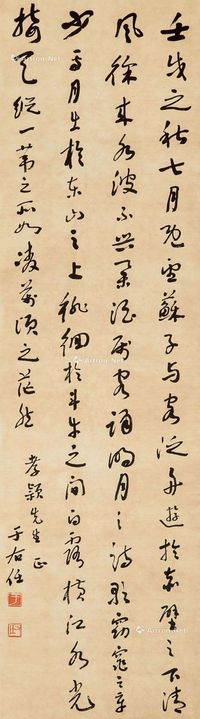 壬戌之秋七月既望蘇子与客泛舟遊於赤壁之下清
風徐来水波不興舉酒屬客誦明月之詩歌窈窕之章
少焉月出於東山之上徘徊於斗牛之間白露橫江水光
接天縱一葦之所如凌萬頃之茫然
孝穎先生正
于右任